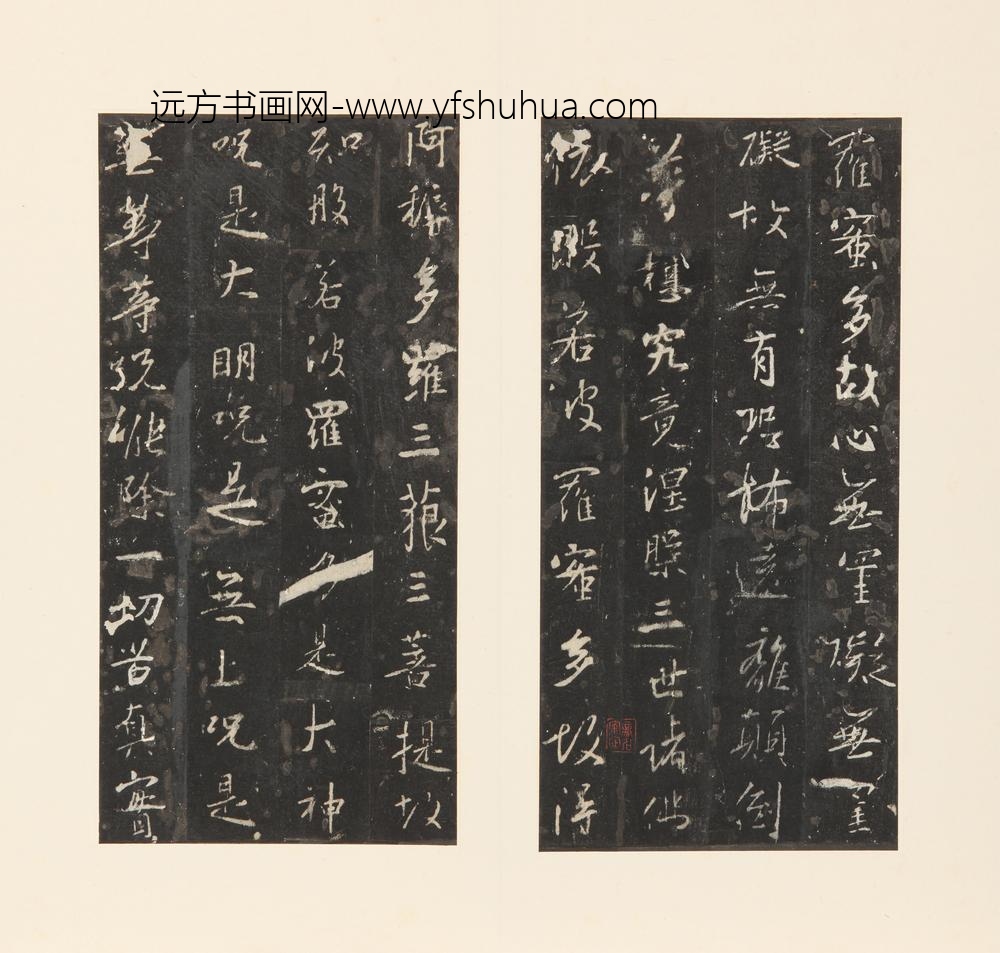 远方书画网-www.yfshuhua.com
羅蜜多故心無罣礙無罣
礙故無有恐怖遠離顛倒
夢想究竟涅槃三世諸佛
依般若波羅蜜多故得
阿耨多羅三藐三菩提故
知般若波羅蜜多是大神
呪是大明呪是無上呪是
無等等呪能除一切苦真實